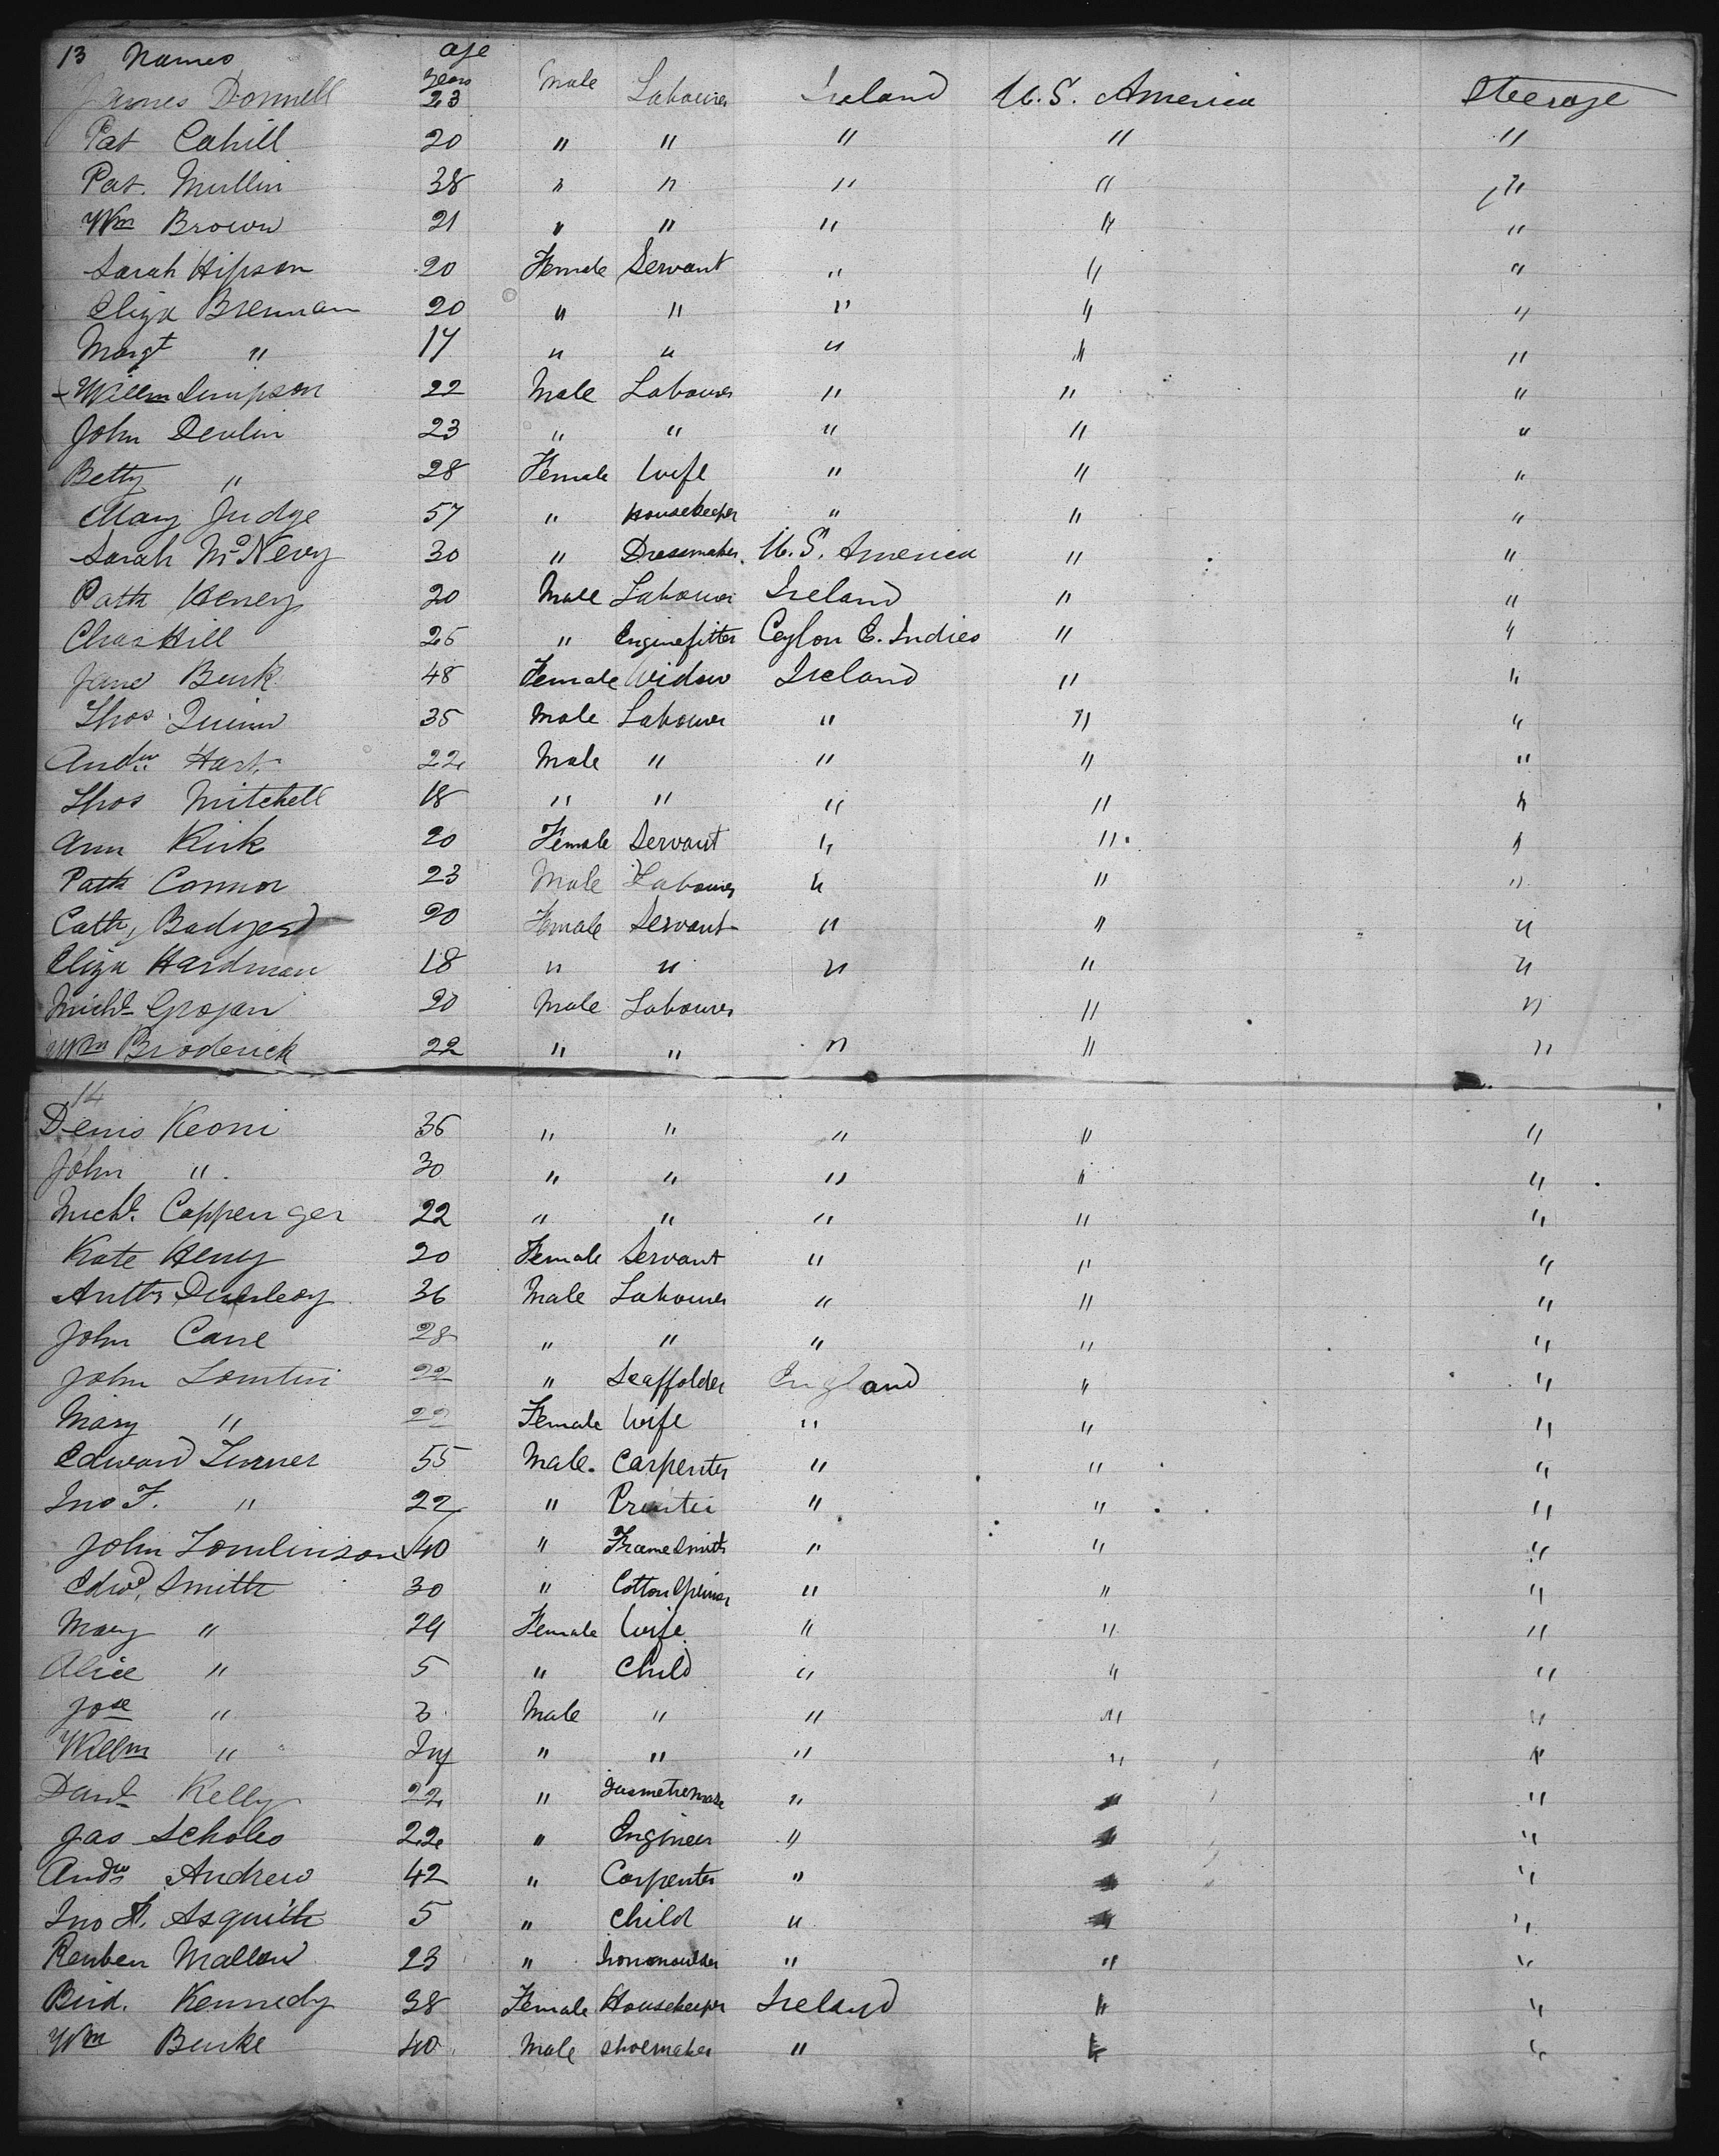 13 Names age
years
James Donnell 23 Male Labourer Ireland U.S. America Steerage
Pat Cahill 20 " " " " "
Pat. Mullin 38 " " " " "
Wm Brown 21 " " " " "
Sarah Hipson 20 Female Servant " " "
Eliza Brennan 20 " " " " "
Margt " 17 " " " " "
Willm Simpson 22 Male Labourer " " "
John Devlin 23 " " " " "
Betty " 28 Female Wife " " "
Mary Judge 57 " Housekeeper " " "
Sarah McNevy 30 " Dressmaker U.S. America " "
Patk Heney 20 Male Labourer Ireland " "
Chas Hill 25 " Enginefitter Ceylon E. Indies " "
Jane Burk 48 Female Widow Ireland " "
Thos Quinn 35 Male Labourer " " "
Andw Hart 22 Male " " " "
Thos Mitchell 18 " " " " "
Ann Kirk 20 Female Servant " " "
Patk Connor 23 Male Labourer " " "
Cath, 20 Female Servant " " "
Eliza Hardman 18 " " " " "
Michl Grogan 20 Male Labourer " "
Wm Broderick 22 " " " " "
14
Denis Keoni 36 " " " " "
John " 30 " " " " "
Michl. Coppenger 22 " " " " "
Kate Heney 20 Female Servant " " "
Anthy 36 Male Labourer " " "
John Cane 28 " " " " "
John 22 " Scaffolder England " "
Mary " 22 Female Wife " " "
Edward Turner 55 Male Carpenter " " "
Jno F. " 22 " Printer " " "
John Tomlinson 40 " Framesmith " " "
Edwd, Smith 30 " Cotton Spinner " " "
Mary " 29 Female Wife " " "
Alice " 5 " Child " " "
Jose " 3 Male " " " "
Willm " Inf " " " " "
Danl Kelly 22 " " " "
Jas Scholes 22 " Engineer " " "
Andw Andrew 42 " Carpenter " " "
Jno H. Asquith 5 " Child " " "
Reuben Mallow 23 " Ironmoulder " " "
Brid. Kennedy 38 Female Housekeeper Ireland " "
Wm Burke 40 Male Shoemaker " " "